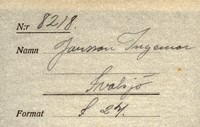 N:r 8218.
Namn Jansson Ingemar
Svalsjö
Format S 24.